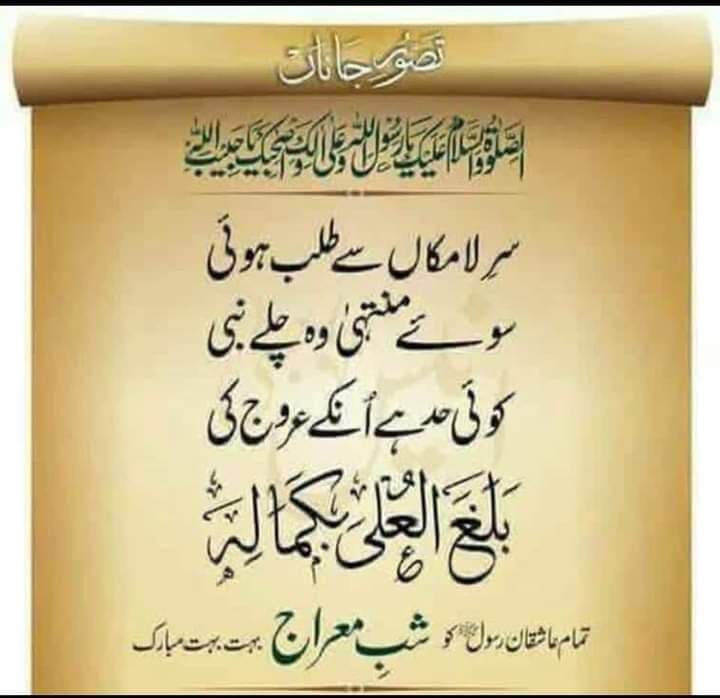 تصورِ جاناں
الصلوٰۃ والسلام علیک یا رسول اللہ وعلیٰ الک واصحبک یا حبیب اللہ
سرِ لامکاں سے طلب ہوئی
سوئے منتہیٰ وہ چلے نبی
کوئی حد ہے اُنکے عروج کی
بَلَغَ الْعُلیٰ بِکَمَالِہٖ
تمام عاشقان رسول ﷺ کو شبِ معراج بہت بہت مبارک